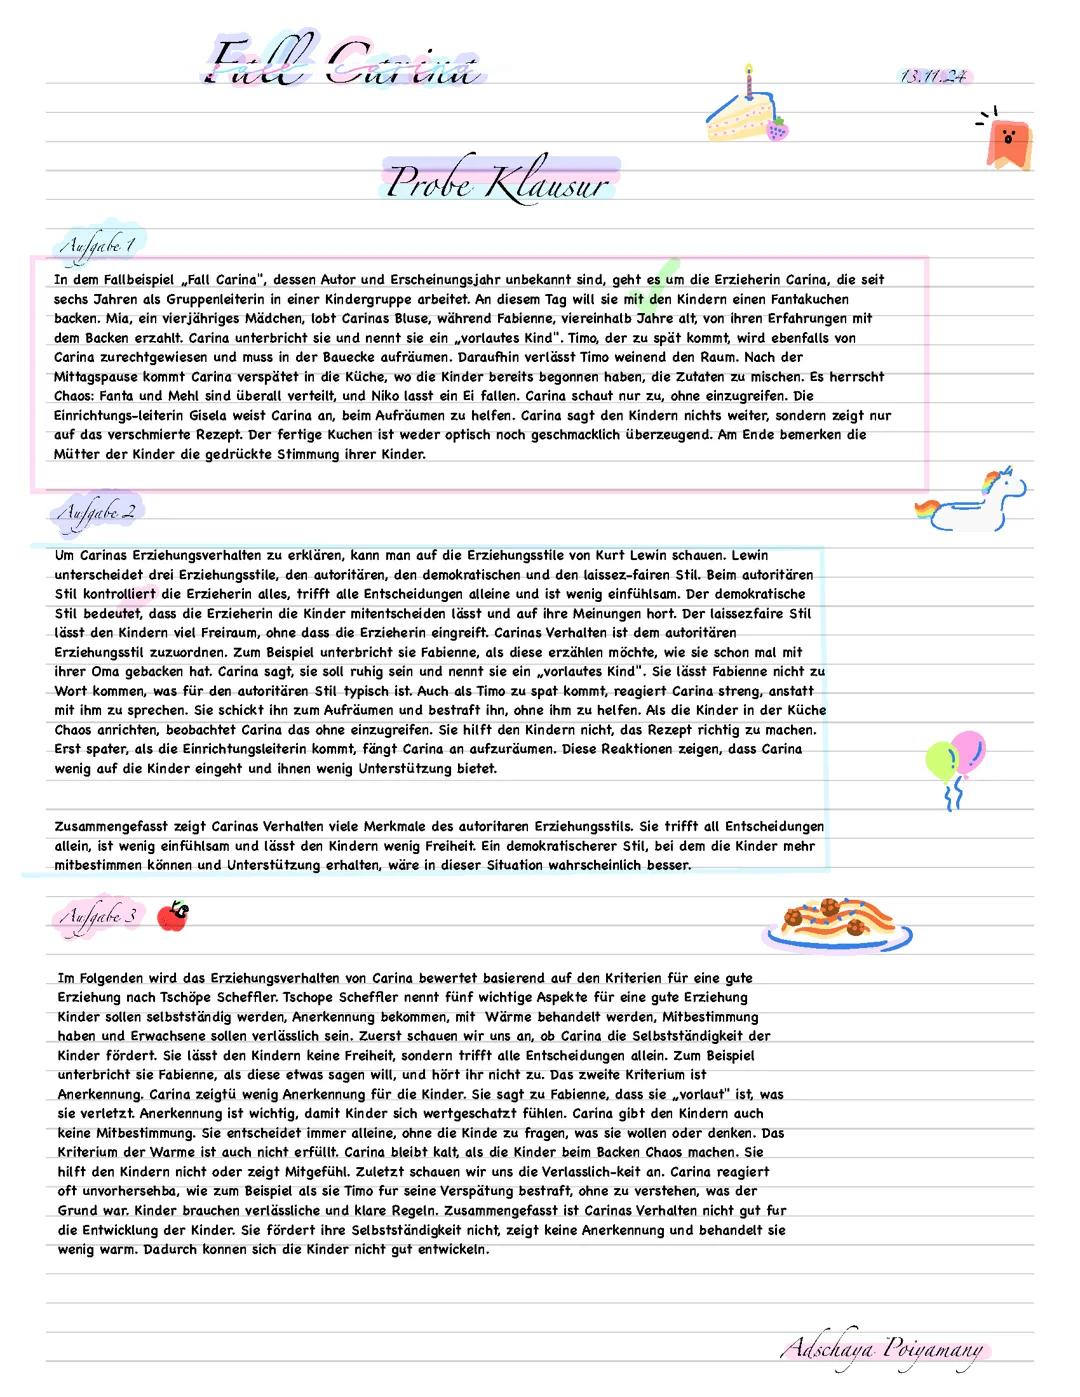 Fall Carina
13.11.24
Probe Klausur
Aufgabe 1
In dem Fallbeispiel „Fall Carina", dessen Autor und Erscheinungsjahr unbekannt sind, geht es um die Erzieherin Carina, die seit
sechs Jahren als Gruppenleiterin in einer Kindergruppe arbeitet. An diesem Tag will sie mit den Kindern einen Fantakuchen
backen. Mia, ein vierjähriges Mädchen, lobt Carinas Bluse, während Fabienne, viereinhalb Jahre alt, von ihren Erfahrungen mit
dem Backen erzahlt. Carina unterbricht sie und nennt sie ein „vorlautes Kind". Timo, der zu spät kommt, wird ebenfalls von
Carina zurechtgewiesen und muss in der Bauecke aufräumen. Daraufhin verlässt Timo weinend den Raum. Nach der
Mittagspause kommt Carina verspätet in die Küche, wo die Kinder bereits begonnen haben, die Zutaten zu mischen. Es herrscht
Chaos: Fanta und Mehl sind überall verteilt, und Niko lasst ein Ei fallen. Carina schaut nur zu, ohne einzugreifen. Die
Einrichtungs-leiterin Gisela weist Carina an, beim Aufräumen zu helfen. Carina sagt den Kindern nichts weiter, sondern zeigt nur
auf das verschmierte Rezept. Der fertige Kuchen ist weder optisch noch geschmacklich überzeugend. Am Ende bemerken die
Mütter der Kinder die gedrückte Stimmung ihrer Kinder.
Aufgabe 2
Um Carinas Erziehungsverhalten zu erklären, kann man auf die Erziehungsstile von Kurt Lewin schauen. Lewin
unterscheidet drei Erziehungsstile, den autoritären, den demokratischen und den laissez-fairen Stil. Beim autoritären
Stil kontrolliert die Erzieherin alles, trifft alle Entscheidungen alleine und ist wenig einfühlsam. Der demokratische
Stil bedeutet, dass die Erzieherin die Kinder mitentscheiden lässt und auf ihre Meinungen hort. Der laissezfaire Stil
lässt den Kindern viel Freiraum, ohne dass die Erzieherin eingreift. Carinas Verhalten ist dem autoritären
Erziehungsstil zuzuordnen. Zum Beispiel unterbricht sie Fabienne, als diese erzählen möchte, wie sie schon mal mit
ihrer Oma gebacken hat. Carina sagt, sie soll ruhig sein und nennt sie ein „vorlautes Kind". Sie lässt Fabienne nicht zu
Wort kommen, was für den autoritären Stil typisch ist. Auch als Timo zu spat kommt, reagiert Carina streng, anstatt
mit ihm zu sprechen. Sie schickt ihn zum Aufräumen und bestraft ihn, ohne ihm zu helfen. Als die Kinder in der Küche
Chaos anrichten, beobachtet Carina das ohne einzugreifen. Sie hilft den Kindern nicht, das Rezept richtig zu machen.
Erst spater, als die Einrichtungsleiterin kommt, fängt Carina an aufzuräumen. Diese Reaktionen zeigen, dass Carina
wenig auf die Kinder eingeht und ihnen wenig Unterstützung bietet.
Zusammengefasst zeigt Carinas Verhalten viele Merkmale des autoritaren Erziehungsstils. Sie trifft all Entscheidungen
allein, ist wenig einfühlsam und lässt den Kindern wenig Freiheit. Ein demokratischerer Stil, bei dem die Kinder mehr
mitbestimmen können und Unterstützung erhalten, wäre in dieser Situation wahrscheinlich besser.
Aufgabe 3
Im Folgenden wird das Erziehungsverhalten von Carina bewertet basierend auf den Kriterien für eine gute
Erziehung nach Tschöpe Scheffler. Tschope Scheffler nennt fünf wichtige Aspekte für eine gute Erziehung
Kinder sollen selbstständig werden, Anerkennung bekommen, mit Wärme behandelt werden, Mitbestimmung
haben und Erwachsene sollen verlässlich sein. Zuerst schauen wir uns an, ob Carina die Selbstständigkeit der
Kinder fördert. Sie lässt den Kindern keine Freiheit, sondern trifft alle Entscheidungen allein. Zum Beispiel
unterbricht sie Fabienne, als diese etwas sagen will, und hört ihr nicht zu. Das zweite Kriterium ist
Anerkennung. Carina zeigtü wenig Anerkennung für die Kinder. Sie sagt zu Fabienne, dass sie „vorlaut" ist, was
sie verletzt. Anerkennung ist wichtig, damit Kinder sich wertgeschatzt fühlen. Carina gibt den Kindern auch
keine Mitbestimmung. Sie entscheidet immer alleine, ohne die Kinde zu fragen, was sie wollen oder denken. Das
Kriterium der Warme ist auch nicht erfüllt. Carina bleibt kalt, als die Kinder beim Backen Chaos machen. Sie
hilft den Kindern nicht oder zeigt Mitgefühl. Zuletzt schauen wir uns die Verlasslich-keit an. Carina reagiert
oft unvorhersehba, wie zum Beispiel als sie Timo fur seine Verspätung bestraft, ohne zu verstehen, was der
Grund war. Kinder brauchen verlässliche und klare Regeln. Zusammengefasst ist Carinas Verhalten nicht gut fur
die Entwicklung der Kinder. Sie fördert ihre Selbstständigkeit nicht, zeigt keine Anerkennung und behandelt sie
wenig warm. Dadurch konnen sich die Kinder nicht gut entwickeln.
Adschaya Poiyamany